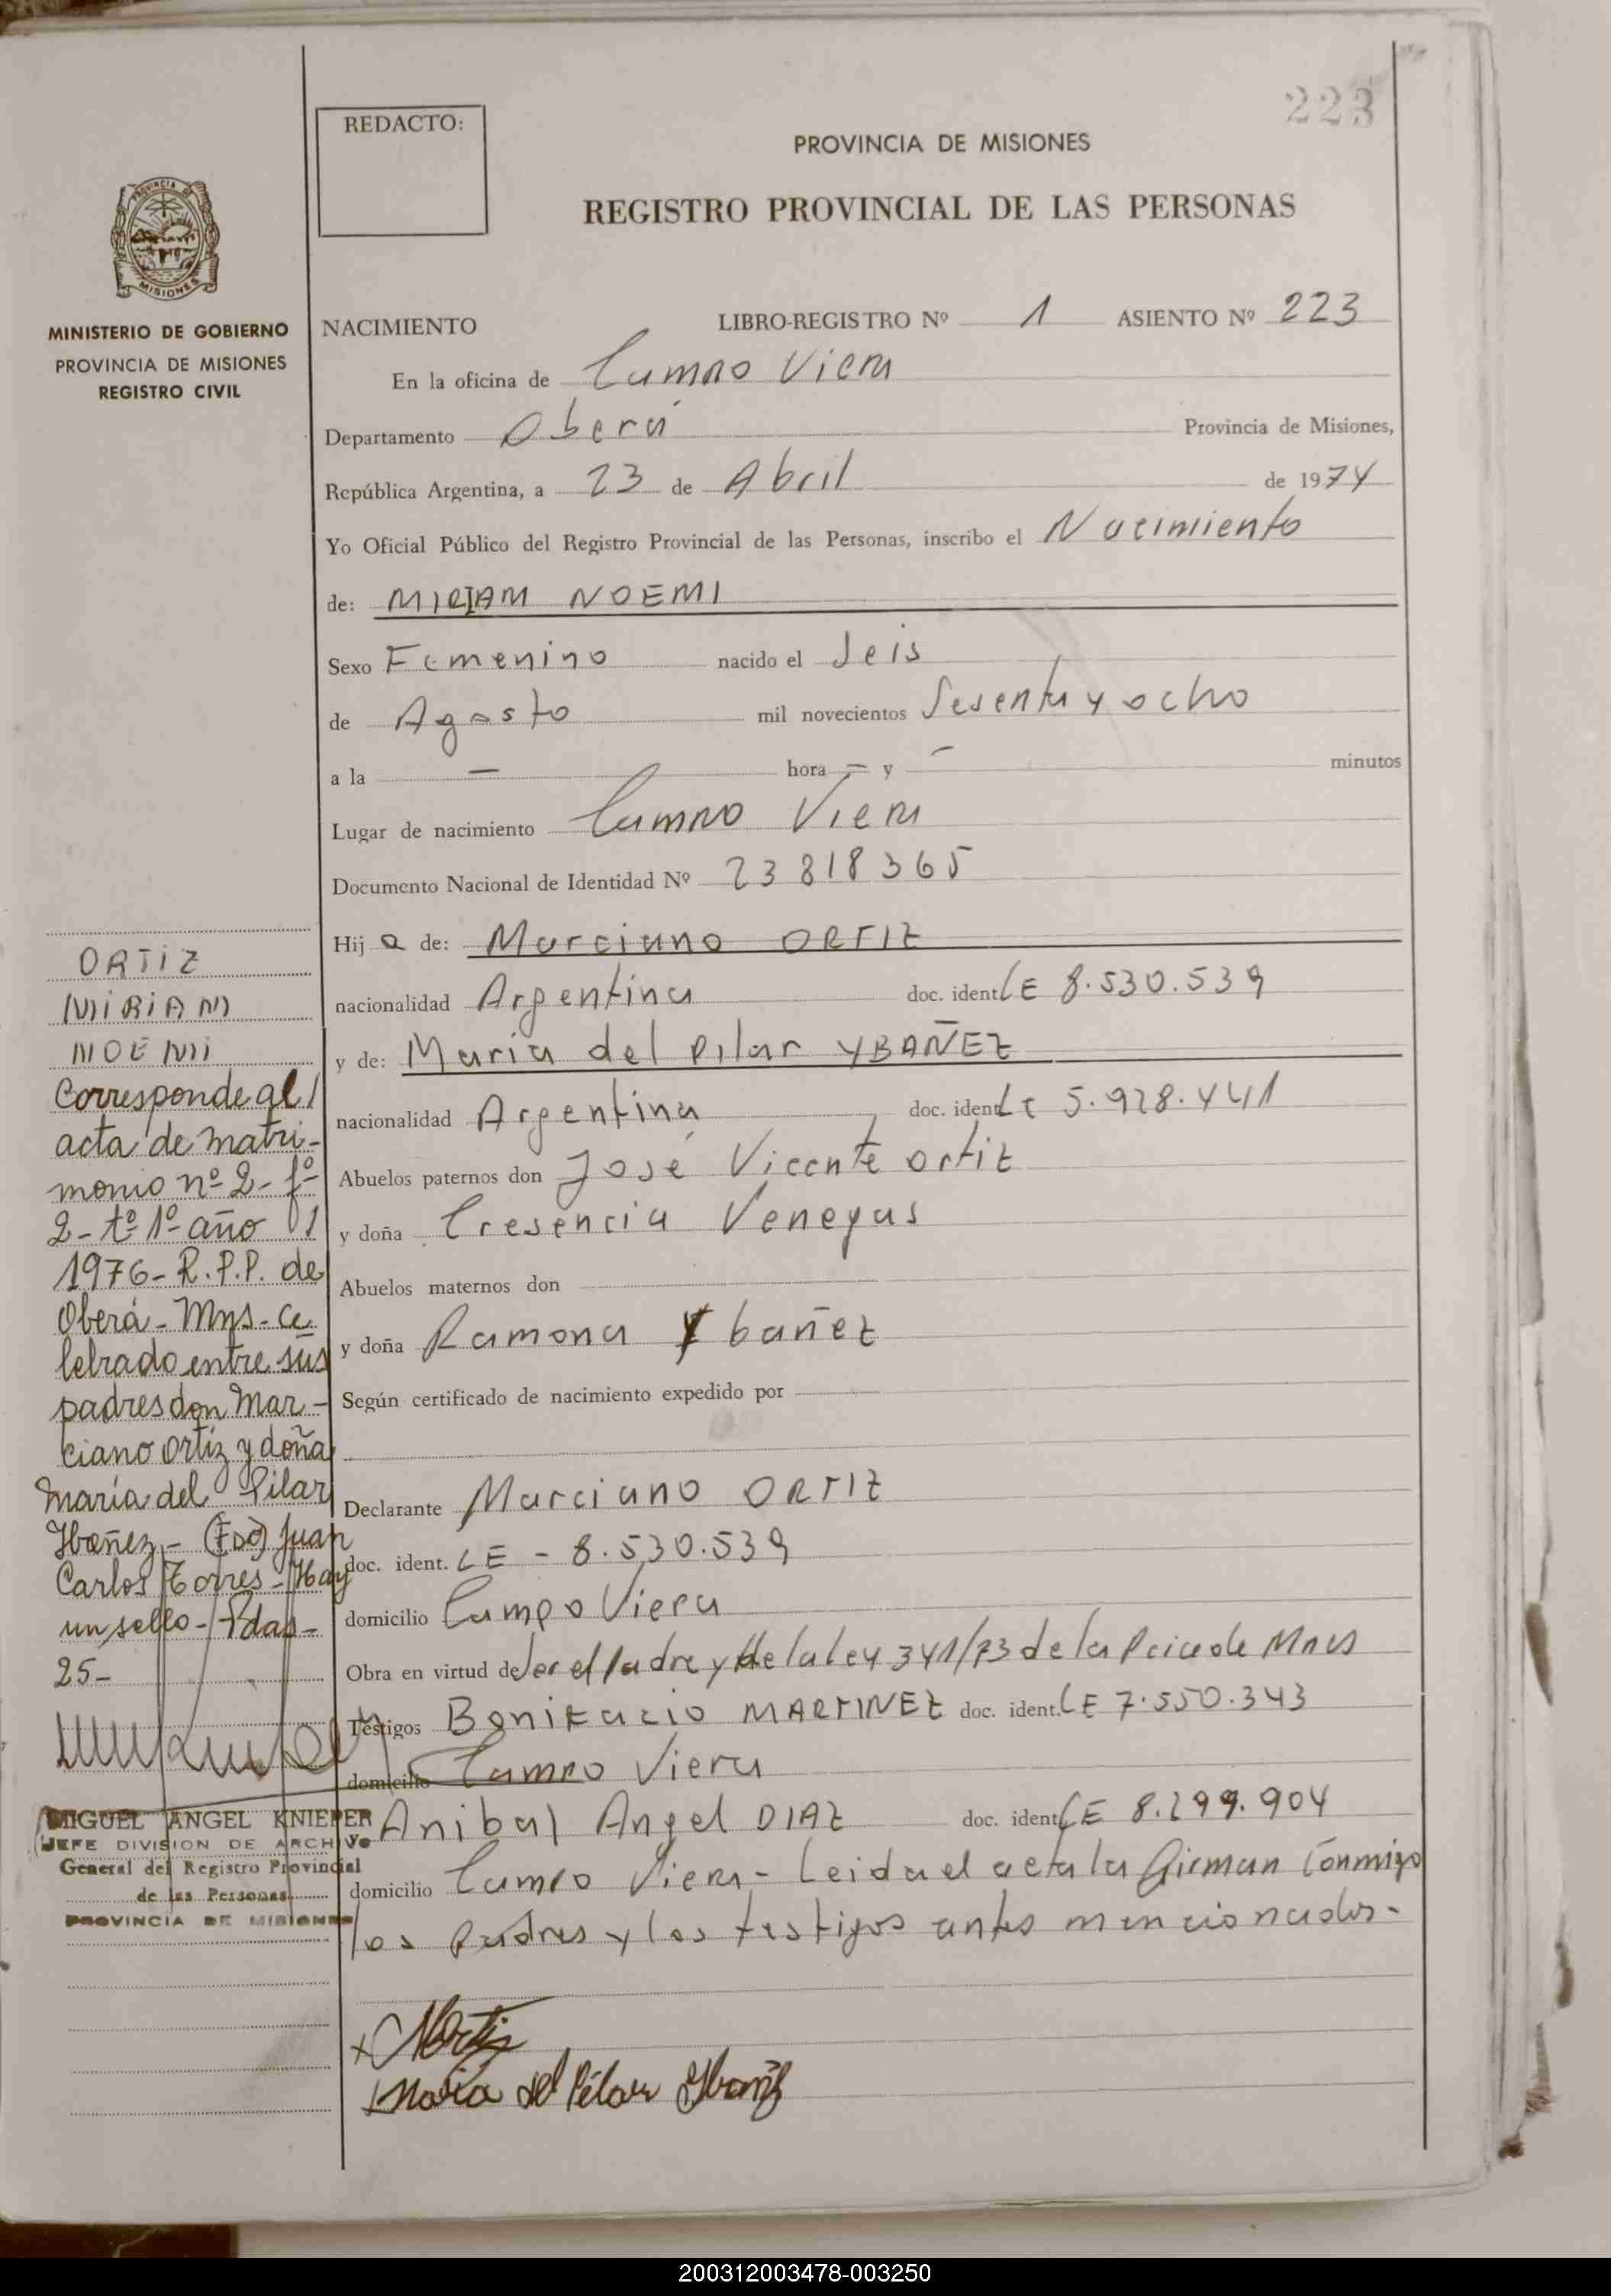 223
REDACTO:
PROVINCIA DE MISIONES
REGISTRO PROVINCIAL DE LAS PERSONAS
PROVINCIA DE
MISIONES
MINISTERIO DE GOBIERNO
PROVINCIA DE MISIONES
REGISTRO CIVIL
NACIMIENTO LIBRO-REGISTRO Nº 1 ASIENTO Nº 223
En la oficina de Campo Viera
Departamento Oberá Provincia de Misiones,
República Argentina, a 23 de Abril de 1974
Yo Oficial Público del Registro Provincial de las Personas, inscribo el Nacimiento
de: MIRIAM NOEMI
Sexo Femenino nacido el Seis
de Agosto mil novecientos Sesenta y ocho
a la — hora — y — minutos
Lugar de nacimiento Campo Viera
Documento Nacional de Identidad Nº 23818365
Hij a de: Marciano ORTIZ
nacionalidad Argentina doc. ident. LE 8.530.539
y de: Maria del Pilar YBAÑEZ
nacionalidad Argentina doc. ident. LC 5.928.441
Abuelos paternos don José Vicente Ortiz
y doña Cresencia Venegas
Abuelos maternos don
y doña Ramona Ybañez
Según certificado de nacimiento expedido por
Declarante Marciano ORTIZ
doc. ident. LE - 8.530.539
domicilio Campo Viera
Obra en virtud de Ser el Padre y de la Ley 341/73 de la Pcia de Mnes
Testigos Bonifacio MARTINEZ doc. ident. LE 7.550.343
domicilio Campo Viera
Yo Anibal Angel DIAZ doc. ident. LE 8.299.904
domicilio Campo Viera - Leida el acta la Firman Conmigo
los Padres y los testigos antes mencionados.-
Mortiz
Maria del Pilar Ybañez
ORTIZ
MIRIAM
NOEMI
Corresponde al
acta de matri-
monio nº 2- fº
2- tº 1º año
1976- R.P.P. de
Oberá - Mns - ce
lebrado entre sus
padres don Mar-
ciano Ortiz y doña
María del Pilar
Ibañez - (Fdo) Juan
Carlos Torres - Hay
un sello - Pdas -
25-
MIGUEL ANGEL KNIEPER
JEFE DIVISION DE ARCHIVO
General del Registro Provincial
de las Personas
PROVINCIA DE MISIONES
200312003478-003250